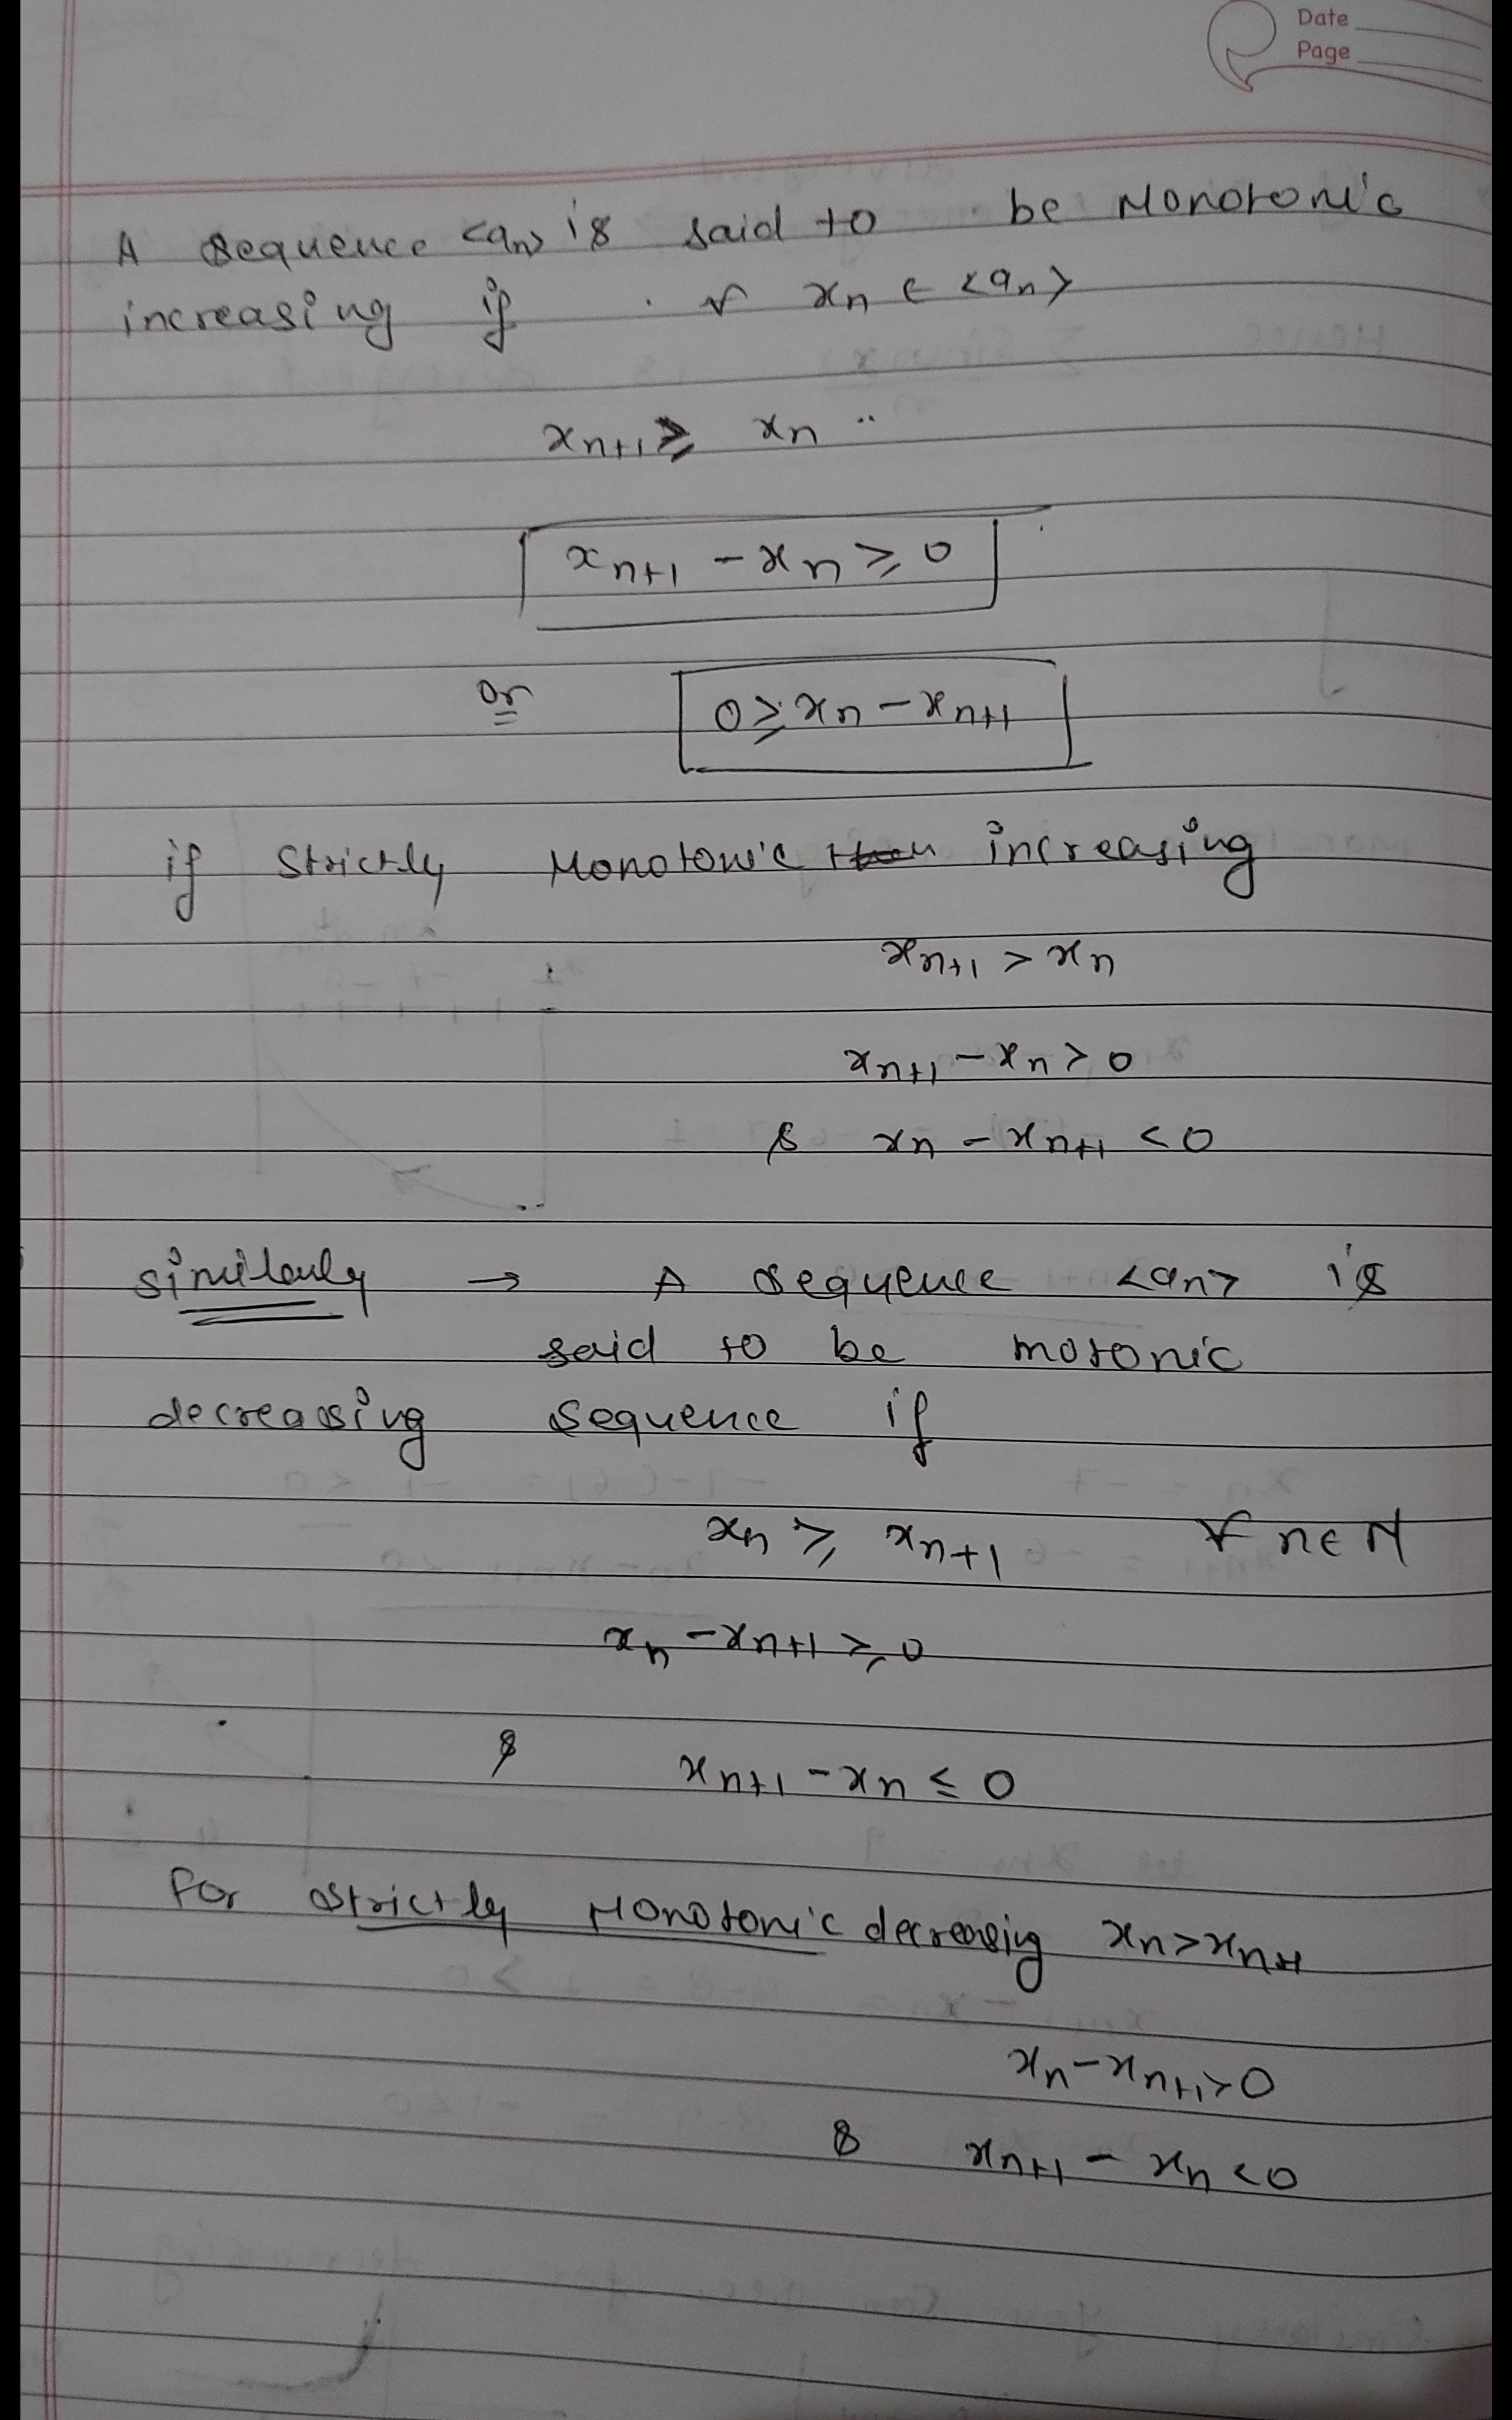 Date
Page
A sequence <an> is said to be Monotonic
increasing if ∀ xn ∈ <an>
xn+1 ≥ xn
xn+1 - xn ≥ 0
or 0 ≥ xn - xn+1
if Strictly Monotonic increasing
xn+1 > xn
xn+1 - xn > 0
& xn - xn+1 < 0
similarly → A sequence <an> is
said to be motonic
decreasing sequence if
xn ≥ xn+1 ∀ n ∈ N
xn - xn+1 ≥ 0
& xn+1 - xn ≤ 0
for strictly Monotonic decreasing xn > xn+1
xn - xn+1 > 0
& xn+1 - xn < 0